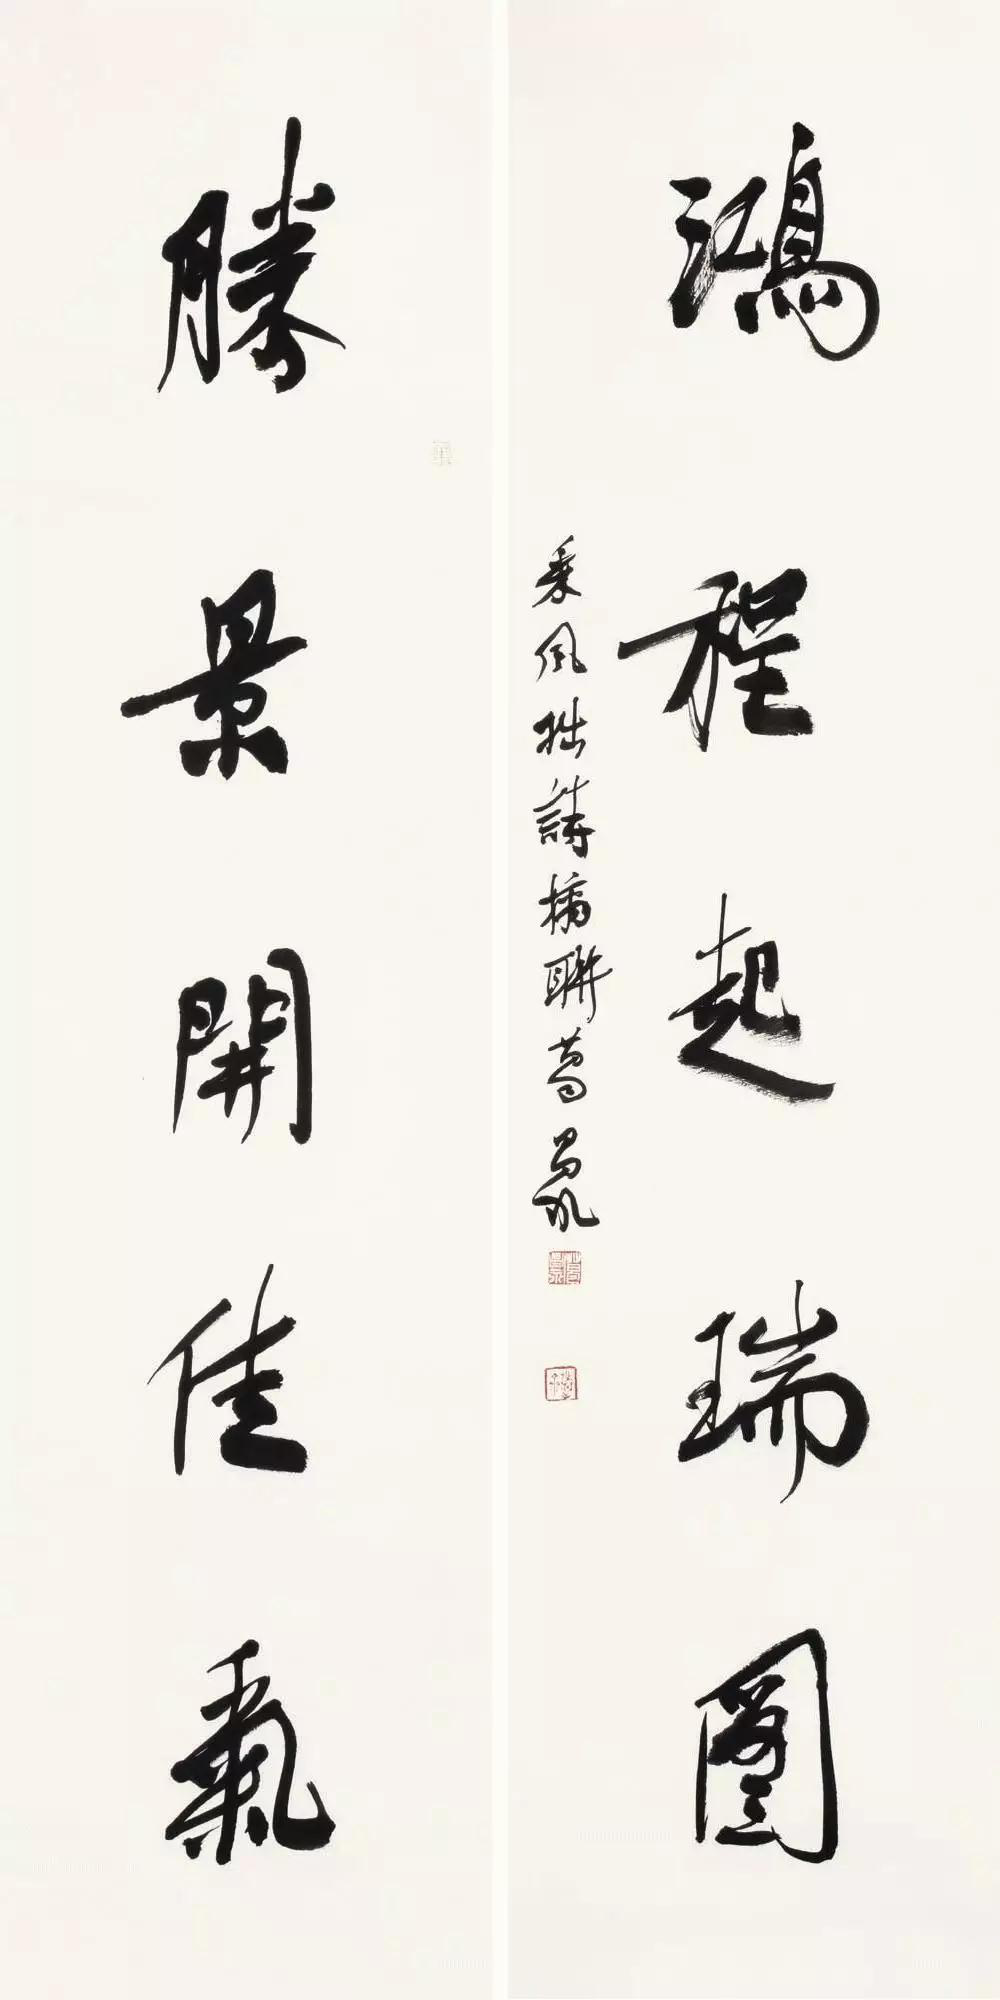 鴻程起瑞圖
乘風拙詩摘聯葛昌
勝景開佳氣